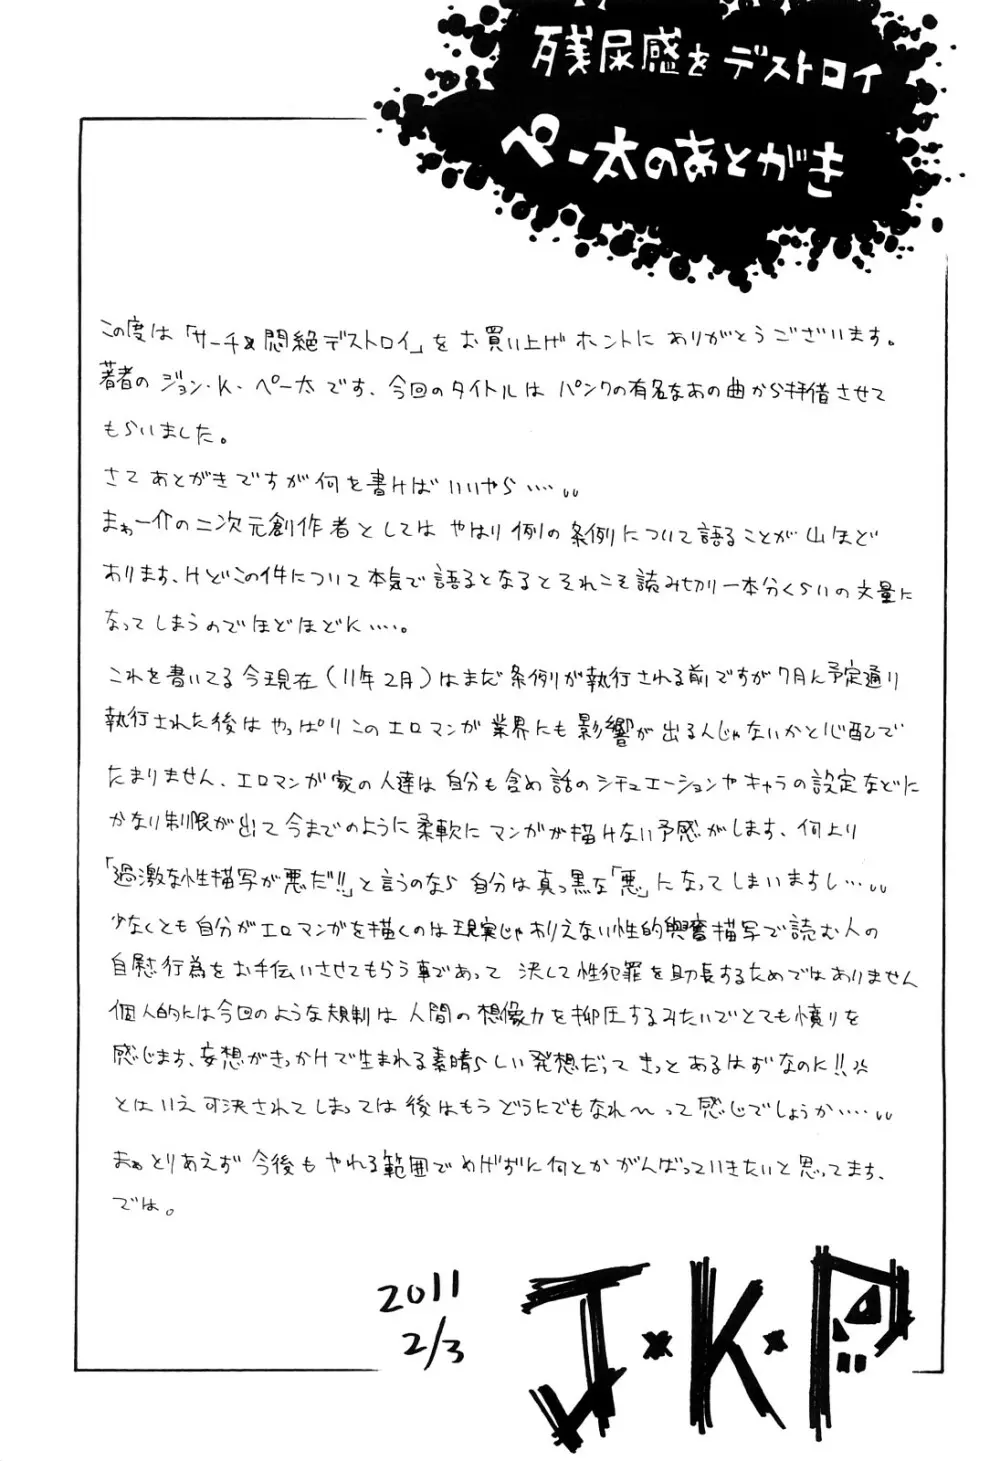 残尿感をデストロイ
ペー太のあとがき
この度は「サーチ&悶絶デストロイ」をお買い上げホントにありがとうございます。
著者のジョン・K・ペー太です、今回のタイトルはパンクの有名なあの曲から拝借させて
もらいました。
さてあとがきですが何を書けばいいやら‥‥。。
まぁ一介の二次元創作者としてはやはり例の条例について語ることが山ほど
あります、けどこの件について本気で語るとなるとそれこそ読み切り一本分くらいの文量に
なってしまうのでほどほどに‥‥。
これを書いてる今現在(11年2月)はまだ条例が執行される前ですが7月に予定通り
執行された後はやっぱりこのエロマンガ業界にも影響が出るんじゃないかと心配で
たまりません、エロマンガ家の人達は自分も含め話のシチュエーションやキャラの設定などに
かなり制限が出て今までのように柔軟にマンガが描けない予感がします、何より
「過激な性描写が悪だ!!」と言うのなら自分は真っ黒な「悪」になってしまいますし‥‥。。
少なくとも自分がエロマンガを描くのは現実じゃありえない性的興奮描写で読む人の
自慰行為をお手伝いさせてもらう事であって決して性犯罪を助長するためではありません
個人的には今回のような規制は人間の想像力を抑圧するみたいでとても憤りを
感じます、妄想がきっかけで生まれる素晴らしい発想だってきっとあるはずなのに!!
とはいえ可決されてしまっては後はもうどうにでもなれ〜って感じでしょうか‥‥。。
まぁとりあえず今後もやれる範囲でめげずに何とかがんばっていきたいと思ってます、
では。
2011
2/3
J×K×P